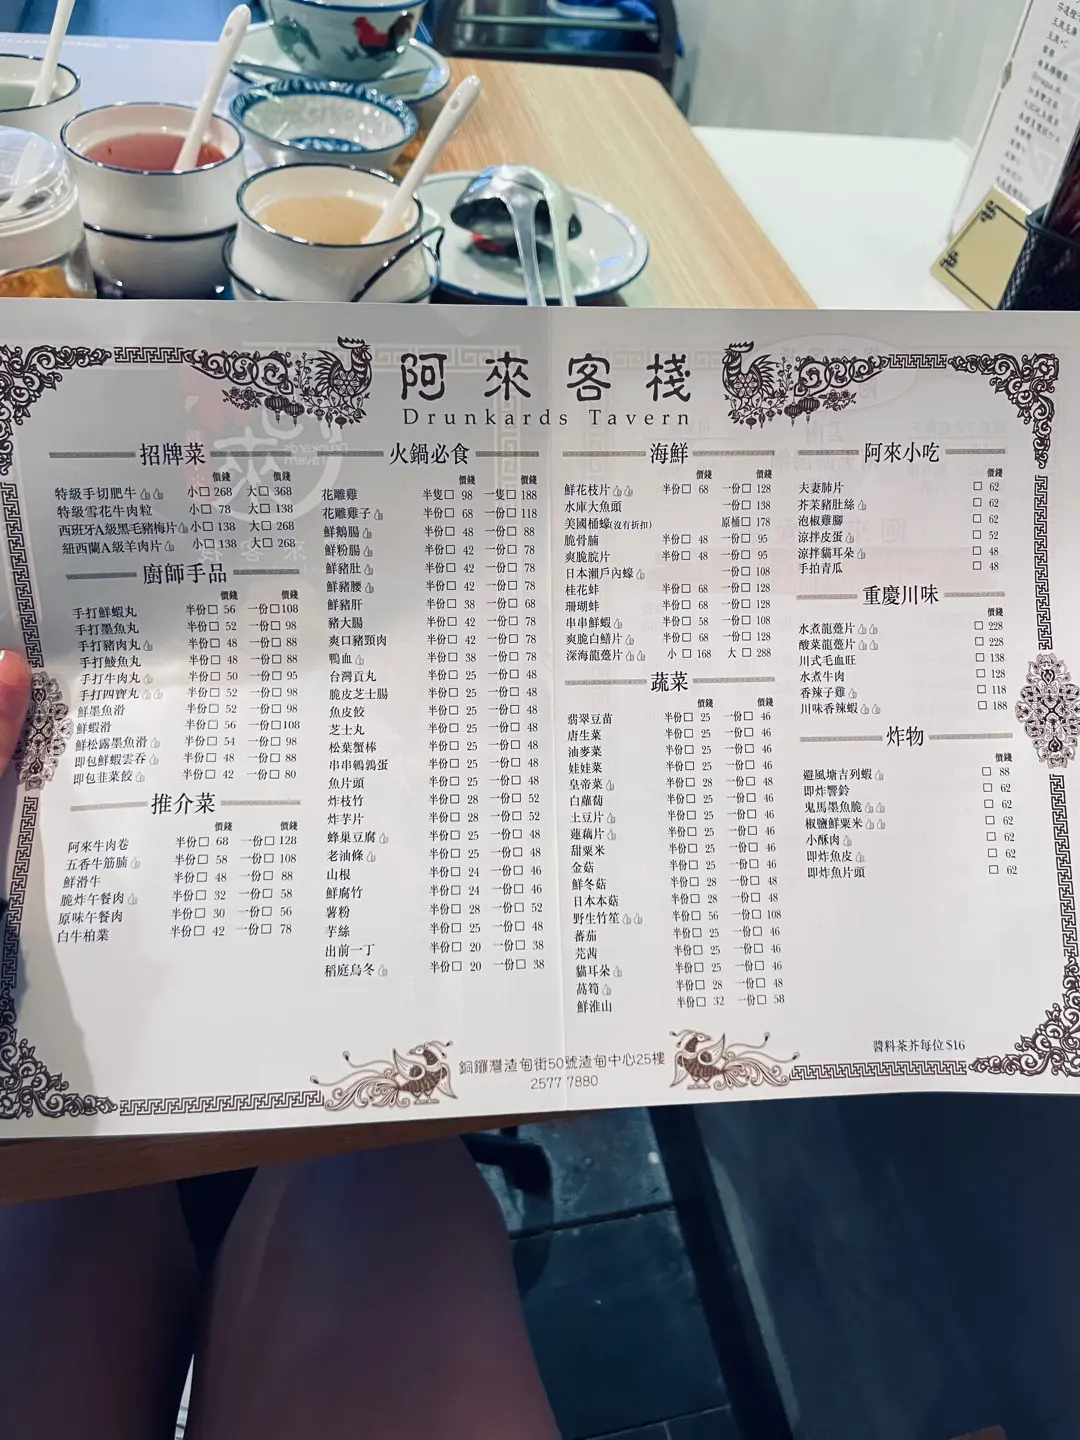 阿來客棧
Drunkards Tavern
招牌菜
價錢 價錢
特級手切肥牛 小□ 268 大□ 368
特級雪花牛肉粒 小□ 78 大□ 138
西班牙A級黑毛豬梅片 小□ 138 大□ 268
紐西蘭A級羊肉片 小□ 138 大□ 268
廚師手品
價錢 價錢
手打鮮蝦丸 半份□ 56 一份□108
手打墨魚丸 半份□ 52 一份□ 98
手打豬肉丸 半份□ 48 一份□ 88
手打鯪魚丸 半份□ 48 一份□ 88
手打牛肉丸 半份□ 50 一份□ 95
手打四寶丸 半份□ 52 一份□ 98
鮮墨魚滑 半份□ 52 一份□ 98
鮮蝦滑 半份□ 56 一份□108
鮮松露墨魚滑 半份□ 54 一份□ 98
即包鮮蝦雲吞 半份□ 48 一份□ 88
即包韭菜餃 半份□ 42 一份□ 80
推介菜
價錢 價錢
阿來牛肉卷 半份□ 68 一份□128
五香牛筋腩 半份□ 58 一份□ 108
鮮滑牛 半份□ 48 一份□ 88
脆炸午餐肉 半份□ 32 一份□ 58
原味午餐肉 半份□ 30 一份□ 56
白牛柏業 半份□ 42 一份□ 78
火鍋必食
價錢 價錢
花雕雞 半隻□ 98 一隻□ 188
花雕雞子 半份□ 68 一份□ 118
鮮鵝腸 半份□ 48 一份□ 88
鮮粉腸 半份□ 42 一份□ 78
鮮豬肚 半份□ 42 一份□ 78
鮮豬腰 半份□ 42 一份□ 78
鮮豬肝 半份□ 38 一份□ 68
豬大腸 半份□ 42 一份□ 78
爽口豬頸肉 半份□ 42 一份□ 78
鴨血 半份□ 38 一份□ 78
台灣貢丸 半份□ 25 一份□ 48
脆皮芝士腸 半份□ 25 一份□ 48
魚皮餃 半份□ 25 一份□ 48
芝士丸 半份□ 25 一份□ 48
松葉蟹棒 半份□ 25 一份□ 48
串串鵪鶉蛋 半份□ 25 一份□ 48
魚片頭 半份□ 25 一份□ 48
炸枝竹 半份□ 28 一份□ 52
炸芋片 半份□ 28 一份□ 52
蜂巢豆腐 半份□ 25 一份□ 48
老油條 半份□ 25 一份□ 48
山根 半份□ 24 一份□ 46
鮮腐竹 半份□ 24 一份□ 46
薯粉 半份□ 28 一份□ 52
芋絲 半份□ 25 一份□ 48
出前一丁 半份□ 20 一份□ 38
稻庭烏冬 半份□ 20 一份□ 38
海鮮
價錢 價錢
鮮花枝片 半份□ 68 一份□ 128
水庫大魚頭 一份□ 138
美國桶蠔(沒有折扣) 原桶□ 178
脆骨腩 半份□ 48 一份□ 95
爽脆脘片 半份□ 48 一份□ 95
日本瀨戶內蠔 一份□ 108
桂花蚌 半份□ 68 一份□ 128
珊瑚蚌 半份□ 68 一份□ 128
串串鮮蝦 半份□ 58 一份□ 108
爽脆白鱔片 半份□ 68 一份□ 128
深海龍躉片 小 □ 168 大 □ 288
蔬菜
價錢 價錢
翡翠豆苗 半份□ 25 一份□ 46
唐生菜 半份□ 25 一份□ 46
油麥菜 半份□ 25 一份□ 46
娃娃菜 半份□ 25 一份□ 46
皇帝菜 半份□ 28 一份□ 48
白蘿蔔 半份□ 25 一份□ 46
土豆片 半份□ 25 一份□ 46
蓮藕片 半份□ 25 一份□ 46
甜粟米 半份□ 25 一份□ 46
金菇 半份□ 25 一份□ 46
鮮冬菇 半份□ 28 一份□ 48
日本本菇 半份□ 28 一份□ 48
野生竹笙 半份□ 56 一份□ 108
蕃茄 半份□ 25 一份□ 46
芫茜 半份□ 25 一份□ 46
貓耳朵 半份□ 25 一份□ 46
萵筍 半份□ 28 一份□ 48
鮮淮山 半份□ 32 一份□ 58
阿來小吃
價錢
夫妻肺片 □ 62
芥茉豬肚絲 □ 62
泡椒雞腳 □ 62
涼拌皮蛋 □ 52
涼拌貓耳朵 □ 48
手拍青瓜 □ 48
重慶川味
價錢
水煮龍躉片 □ 228
酸菜龍躉片 □ 228
川式毛血旺 □ 138
水煮牛肉 □ 128
香辣子雞 □ 118
川味香辣蝦 □ 188
炸物
價錢
避風塘吉列蝦 □ 88
即炸響鈴 □ 62
鬼馬墨魚脆 □ 62
椒鹽鮮粟米 □ 62
小酥肉 □ 62
即炸魚皮 □ 62
即炸魚片頭 □ 62
醬料茶芥每位 $16
銅鑼灣渣甸街50號渣甸中心25樓
2577 7880